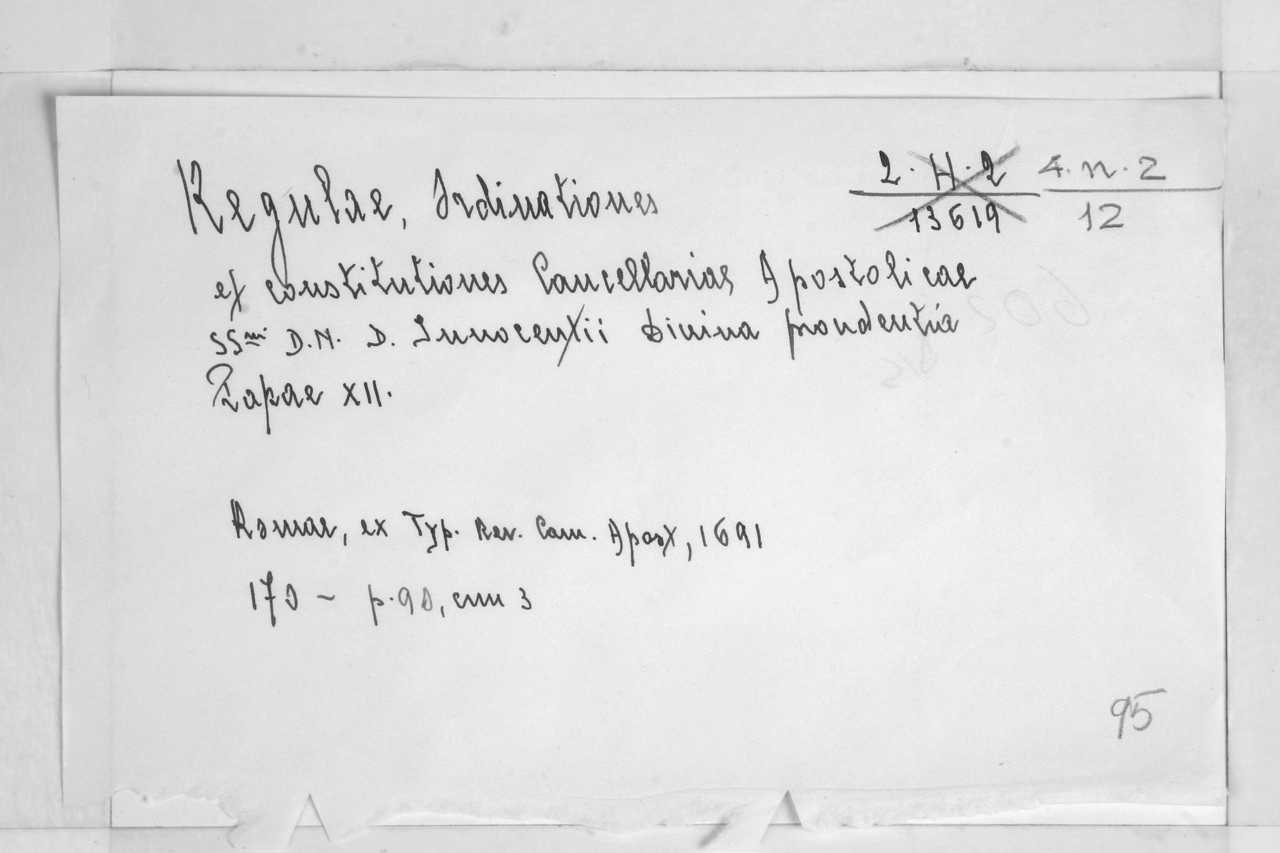 Regulae, Ordinationes
2. H. 2 4. n. 2
13619 12
et constitutiones Cancellariae Apostolicae
SSmi D.N. D. Innocentii divina providentia
Papae XII.
Romae, ex Typ. Rev. Cam. Apost, 1691
170 ~ p. 90, cm 3
95